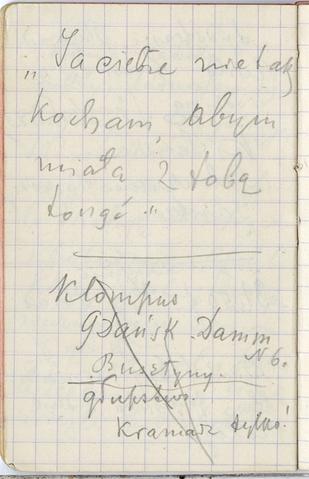 „Ja ciebie nie tak
kocham, abym
miała z tobą
Klompus
Gdańsk. Damm
N 6.
Bursztyny.
głupstwo.
Kramarz tylko!